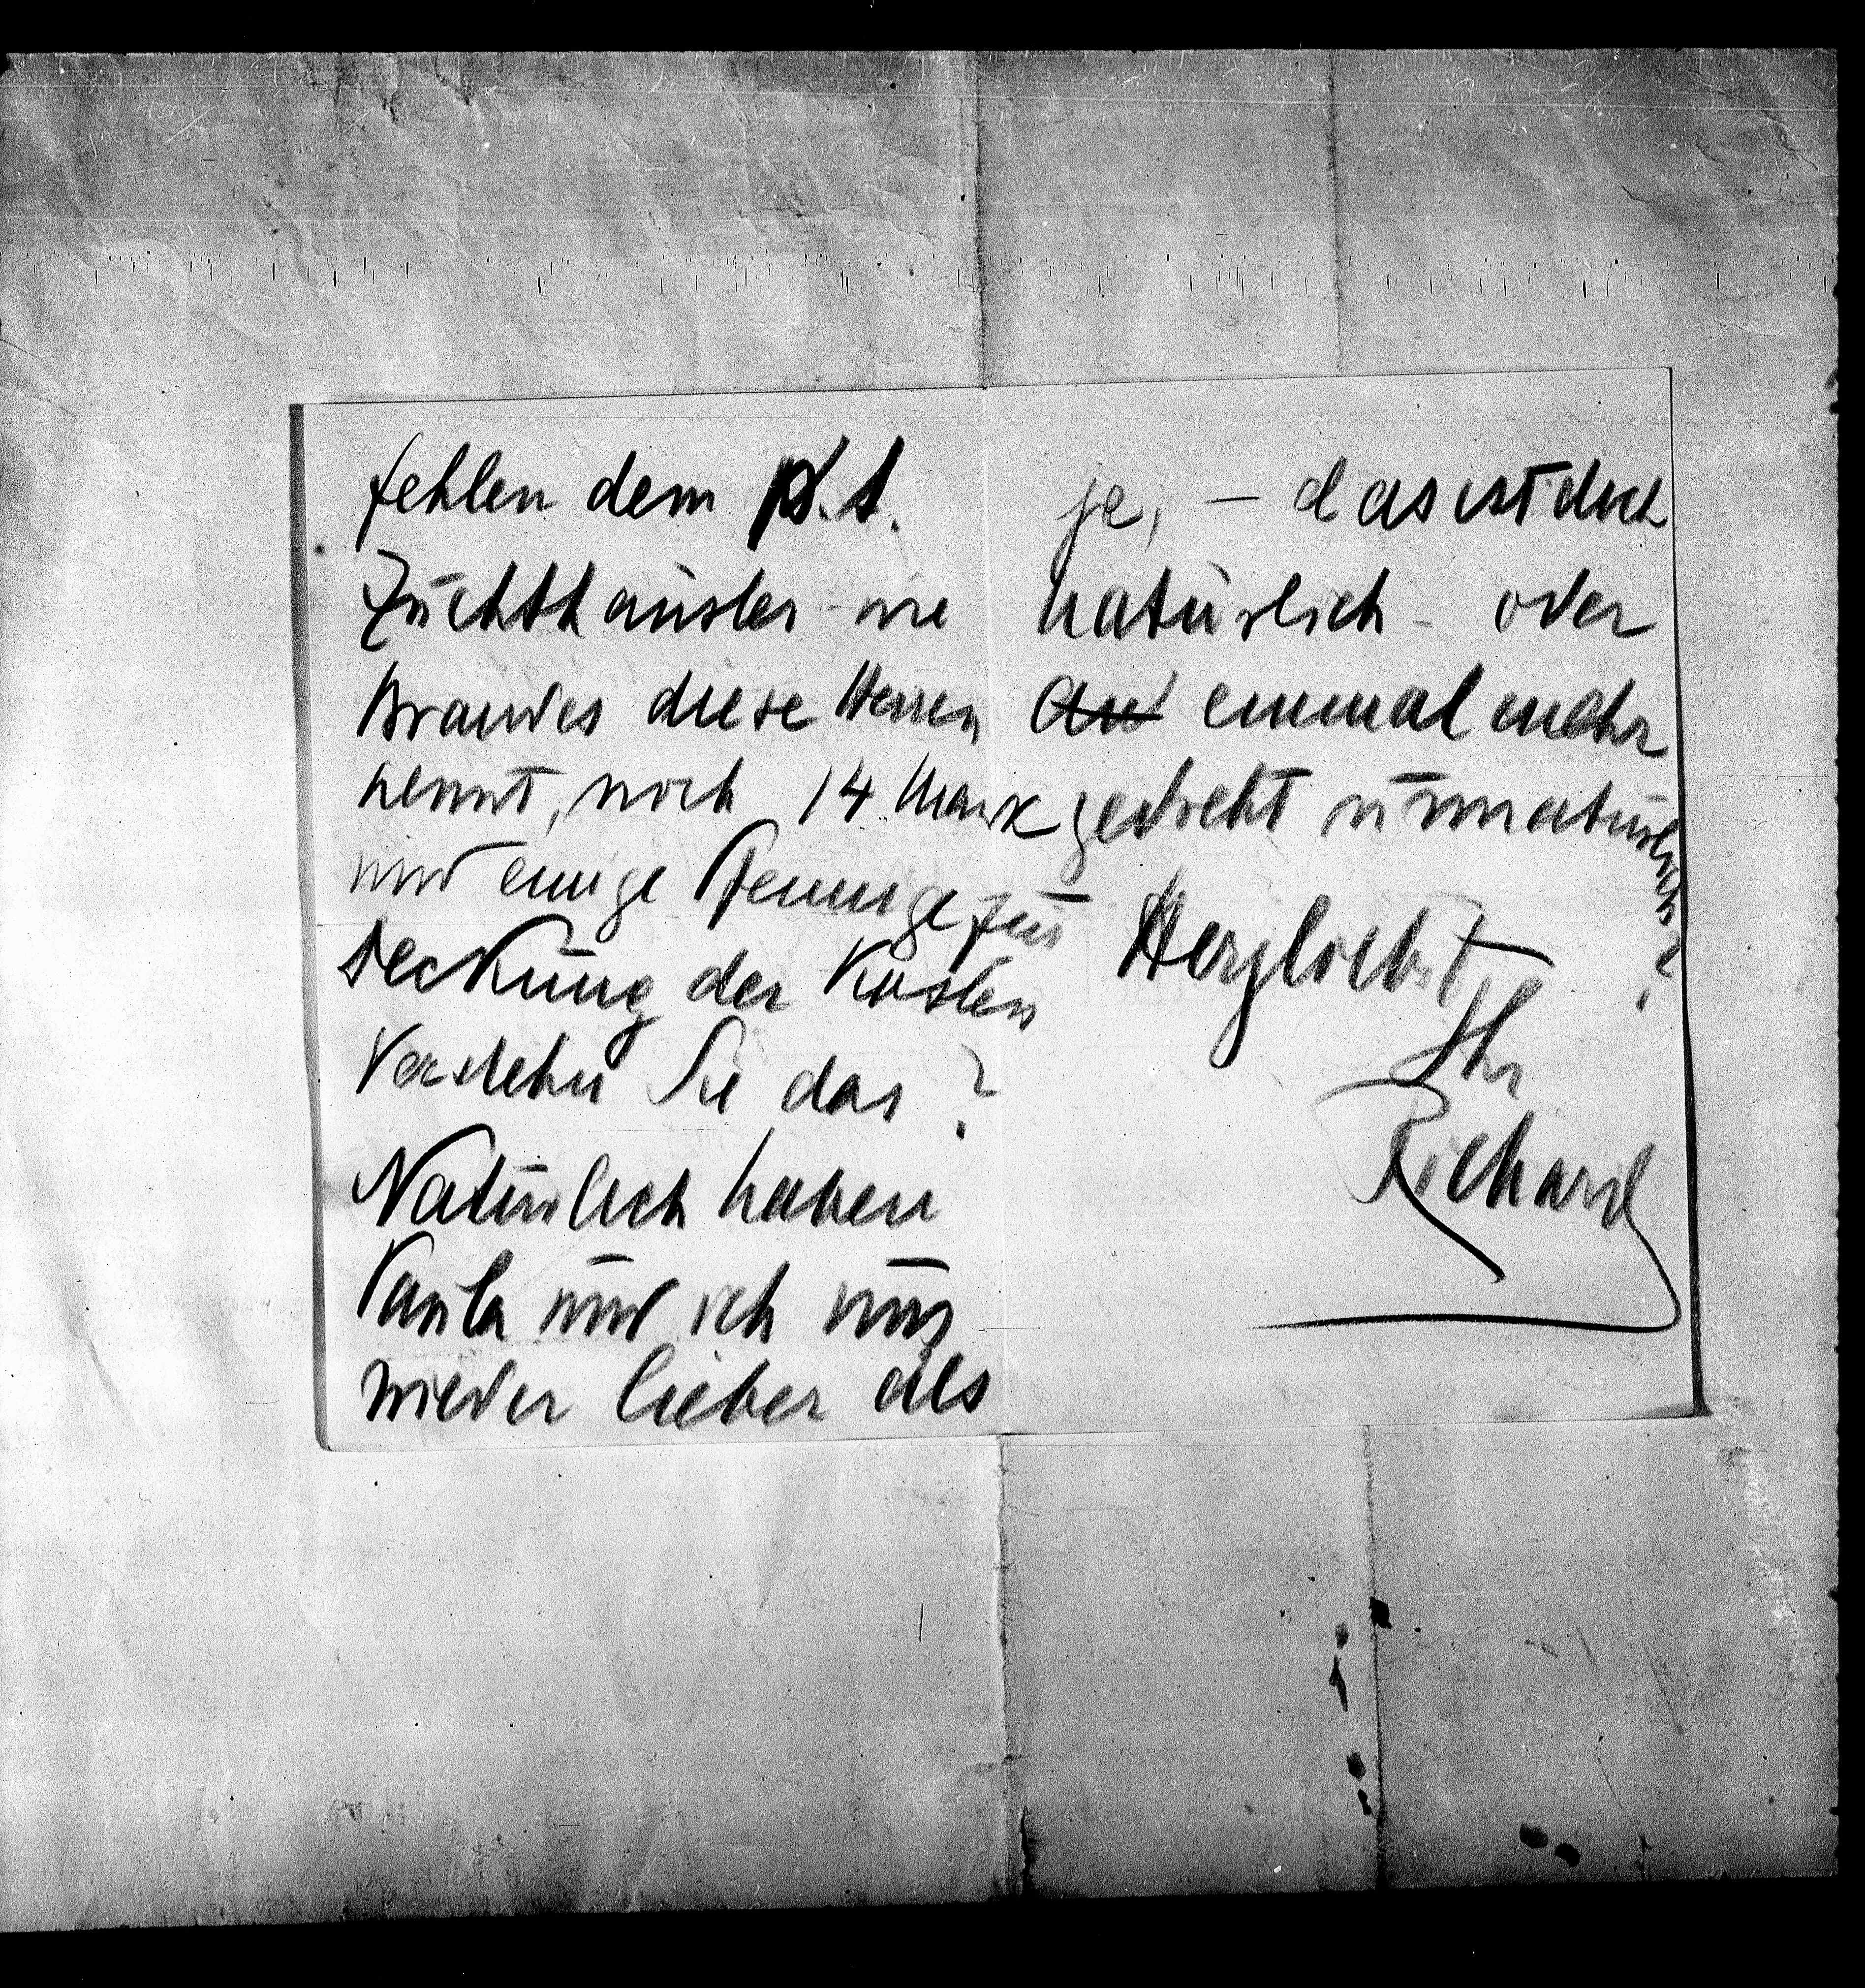 fehlen dem
Zuchthäusler wie
Brandes diese Herren
nennt, noch 14 Mark
und einige Pfennige zur
Deckung der Kosten
Verstehn Sie das?
Natürlich haben
Paula und ich uns
wieder lieber als
je, – das ist doch
natürlich – oder
einmal mehr
gedreht unnatürlich?
Herzlichst
Ihr
Richard